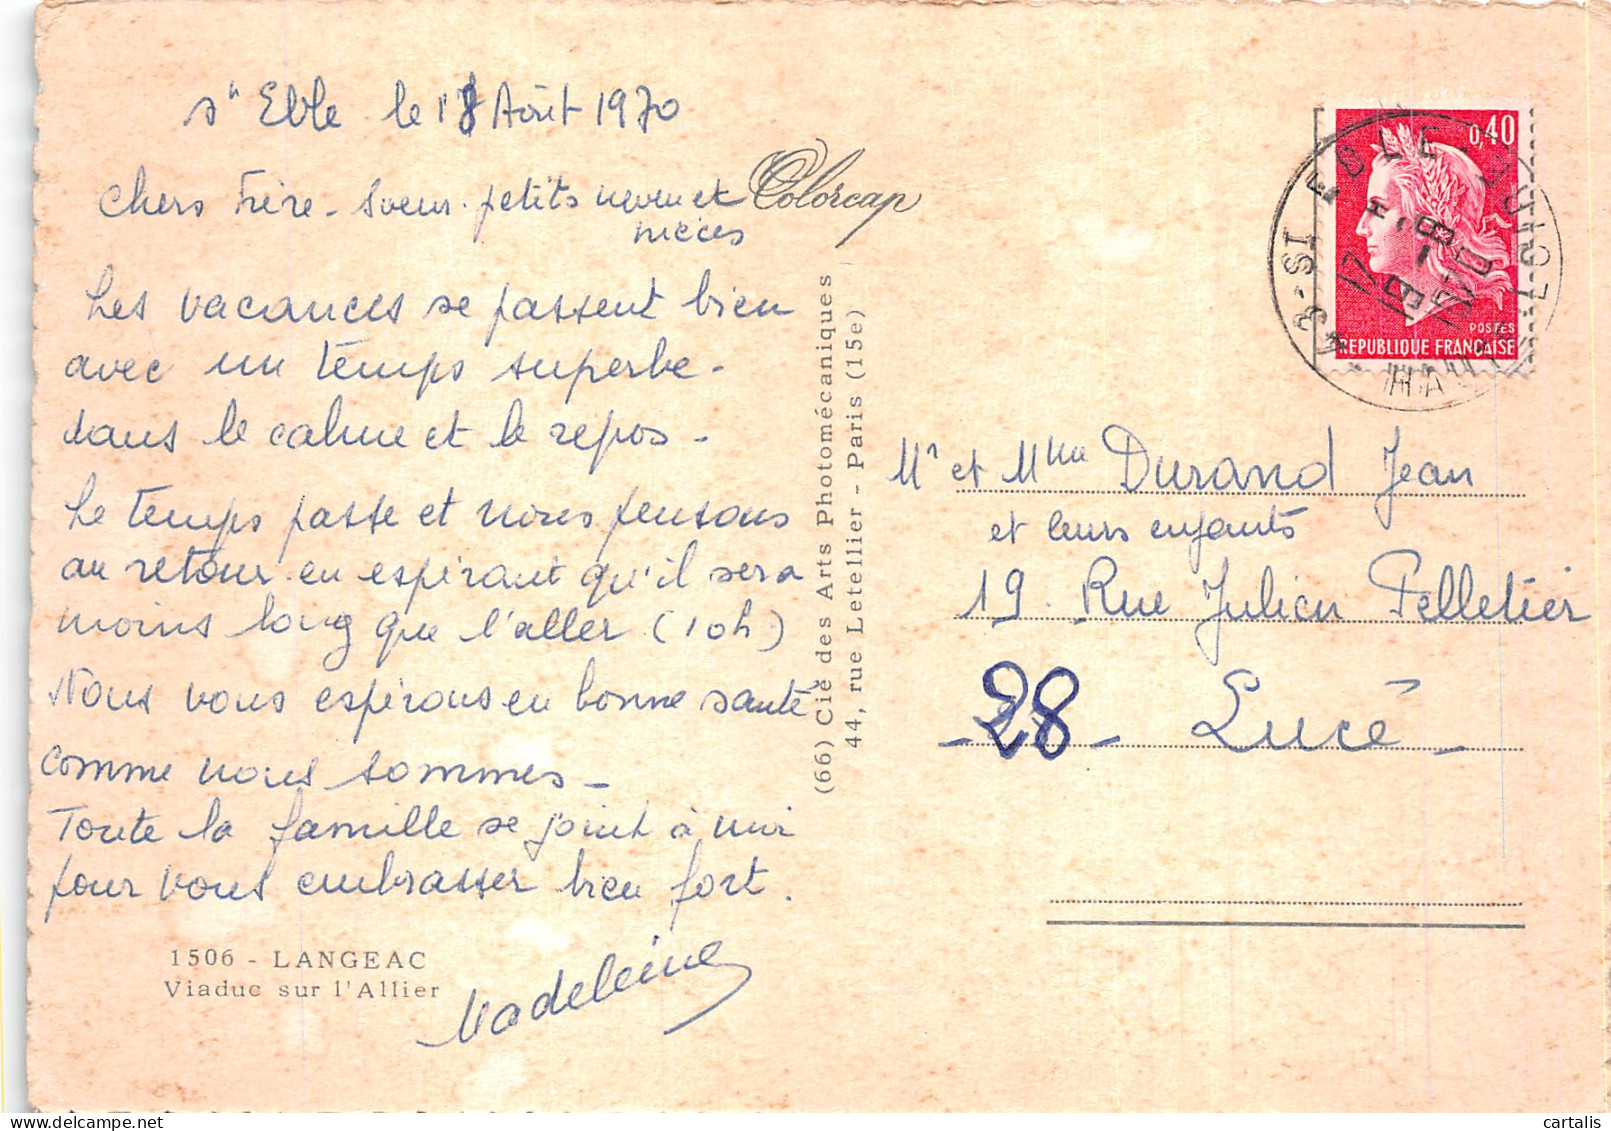 St Eble le 18 Août 1970
Chers Frère - Soeur - petits neveu et
nièces
Les vacances se passent bien
avec un temps superbe -
dans le calme et le repos -
Le temps passe et nous pensons
au retour en espérant qu'il sera
moins long que l'aller (10h)
Nous vous espérons en bonne santé
comme nous sommes -
Toute la famille se joint à moi
pour vous embrasser bien fort.
Madeleine
1506 - LANGEAC
Viaduc sur l'Allier
Colorcap
(66) Cie des Arts Photomécaniques
44, rue Letellier - Paris (15e)
0,40
POSTES
REPUBLIQUE FRANÇAISE
43 - ST EBLE
17 H
HAUTE LOIRE
Mr et Mme Durand Jean
et leurs enfants
19 Rue Julien Pelletier
- 28 - Lucé -
cartalis